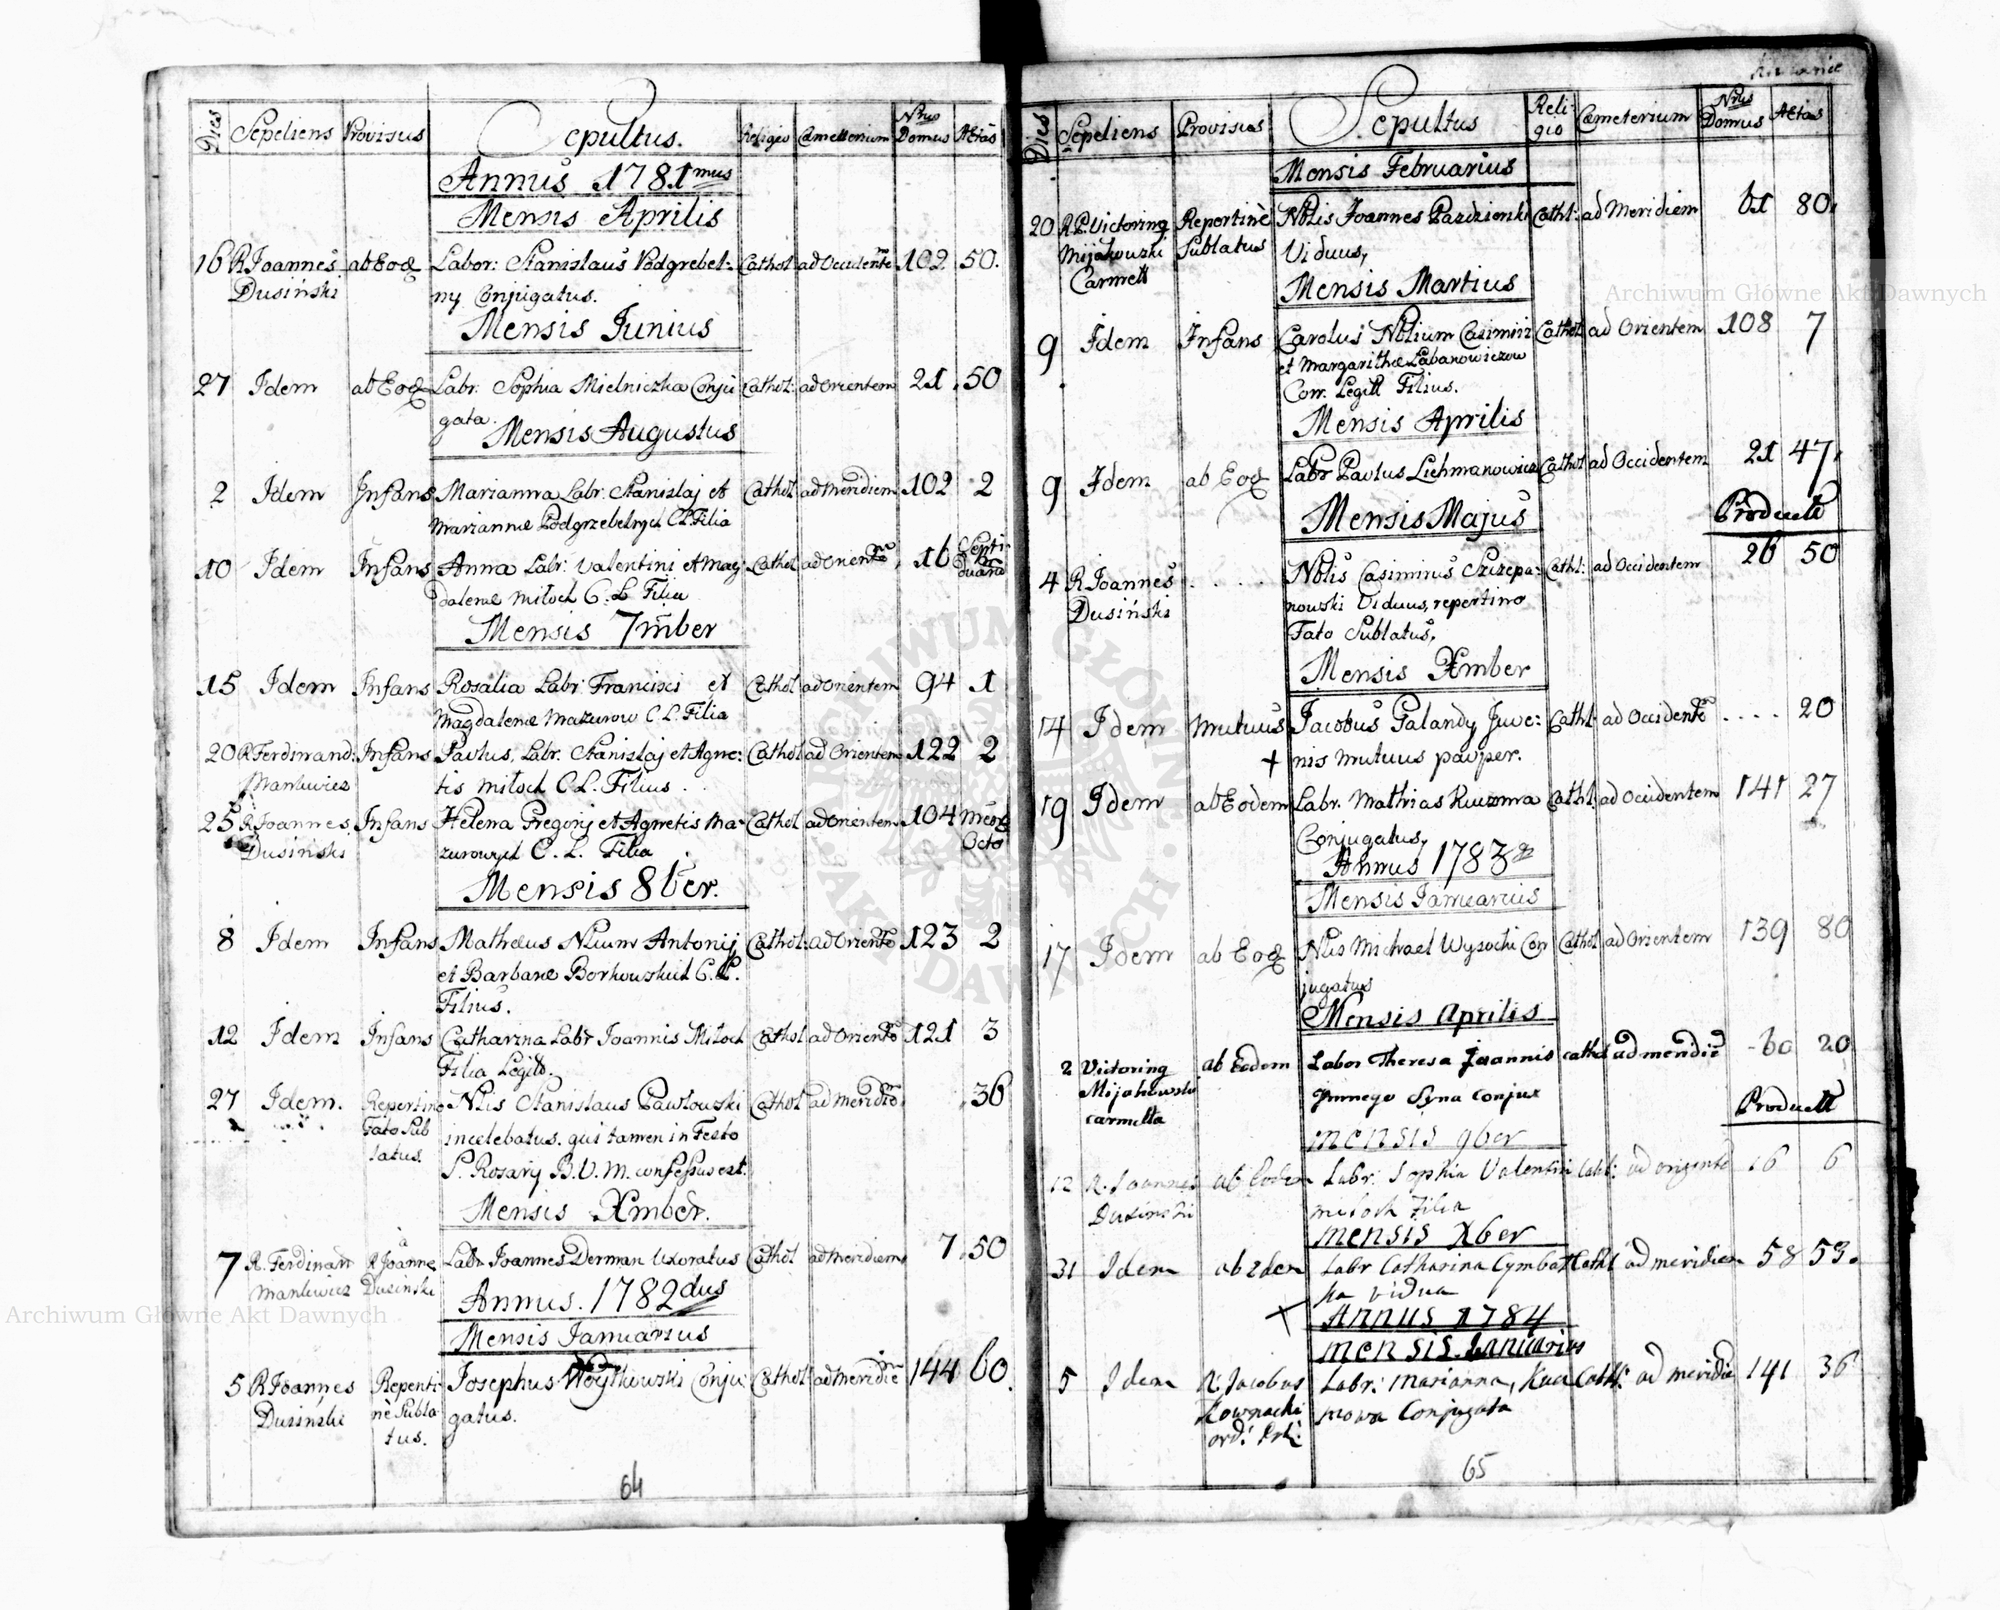 Dies Sepeliens Provisus Sepultus. Religio Cæmeterium Nrus Domus Aetas
Annus 1781mus
Mensis Aprilis
16 R Joannes ab Eod Labor: Stanislaus Podgrebel- Cathol ad Occidente 102 50.
Dusiński ny Conjugatus.
Mensis Junius
27 Idem ab Eod Labr: Sophia Mielniczka Conju Cathol: ad Orientem 21. 50
gata.
Mensis Augustus
2 Idem Infans Marianna Labr: Stanislaj et Cathol ad Meridiem 102 2
Mariannæ Podgrzebelnych C.L. Filia
10 Idem Infans Anna Labr: Valentini et Mag Cathol ad Oriente 16 Septi
duana
dalenæ Miłoch C. L Filia
Mensis 7mber
15 Idem Infans Rosalia Labr Francisci et Cathol ad Orientem 94 1
Magdalenæ Mazurow C.L. Filia
20 R Ferdinand: Infans Paulus, Labr. Stanislaj et Agne: Cathol ad Orientem 122 2
Mankiewicz tis Miłoch C.L. Filius.
25 R Joannes Infans Helena Gregorij et Agnetis Ma- Cathol ad Orientem 104
Octo
Dusiński zurowych C. L. Filia
Mensis 8ber.
8 Idem Infans Mathæus Nlium Antonij Cathol: ad Oriente 123 2
et Barbaræ Borkowskich C. L.
Filius.
12 Idem Infans Catharina Labr Joannis Miłoch Cathol ad Oriente 121 3
Filia Legit.
27 Idem. Repentino Nlis Stanislaus Pawłowski Cathol ad Meridie. 36
Fato Sub incelebatus. qui tamen in Festo
latus. S. Rosarij B.V.M. confessus est.
Mensis Xmber.
7 R. Ferdinan R Joanne Labr Joannes Derman Uxoratus Cathol ad Meridiem 7. 50
Mankiewicz Dusinski
Annus. 1782dus
Mensis Januarius
5 R Joannes Repenti- Josephus Woytkowski Conju Cathol ad Meridie 144 60.
Dusiński nè Subla gatus.
tus.
64
Dies Sepeliens Provisus Sepultus Reli-
gio Cæmeterium Nrus
Domus Aetas
Mensis Februarius
20 R.P. Victoring Repertinè Nblis Joannes Pazdzierski Cathl: ad Meridiem 61 80.
Mijakowski Sublatus Viduus,
Carmelt
Mensis Martius
9 Idem Infans Carolus Nblium Casimiri Cathol ad Orientem 108 7
et Margarithæ Labanowiczow
Con. Legitt Filius.
Mensis Aprilis
9 Idem ab Eod Labr Paulus Lichmanowicz Cathol ad Occidentem 21 47.
Mensis Majus
Product
4 R Joannes . . . . Nblis Casimirus Szczepa- Cathl: ad Occidentem 26 50
Dusiński nowski Viduus, repertino
Fato Sublatus,
Mensis Xmber
14 Idem Mutuus Jacobus Galandy Juve: Cathl: ad Occidente . . . . 20
+ nis mutuus pauper.
19 Idem ab Eodem Labr. Mathias Kuzma Cathl ad Occidentem 141 27
Conjugatus,
Annus 1783
Mensis Januarius
17 Idem ab Eod Nlis Michael Wysocki Con Cathol ad Orientem 139 80
jugatus
Mensis Aprilis
2 Victoring ab Eodem Labor Theresa Joannis cathol ad meridie - 60 20
Mijakowski Syna Conjux
carmelta
Product
mensis 9ber
12 R. Joannes ab Eodem Labr: Sophia Valentini Cathl: ad oriente 16 6
Dusinski Miłoch Filia
mensis Xber
31 Idem Labr Catharina Cymbal Cathl ad meridiem 58 53.
ka vidua
Annus 1784
mensis Januarius
5 Idem R: Jacobus Labr: Marianna, Kuz Cathl: ad meridie 141 36
Kownacki mowa Conjugata
65
Archiwum Główne Akt Dawnych
Archiwum Główne Akt Dawnych
ARCHIWUM GŁÓWNE AKT DAWNYCH